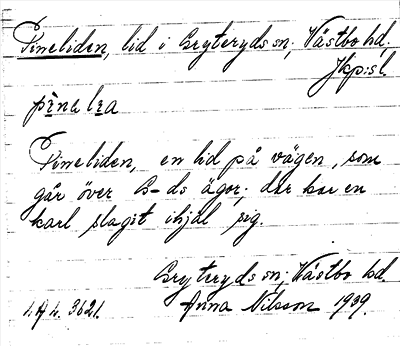 Pineliden, lid i Bryteryds sn; Västbo hd,
Jkp:s l
pìnelia
Pineliden, en lid på vägen, som
går över B-ds ägor; där har en
karl slagit ihjäl sig.
Bryteryds sn; Västbo hd.
Anna Nilsson 1939.